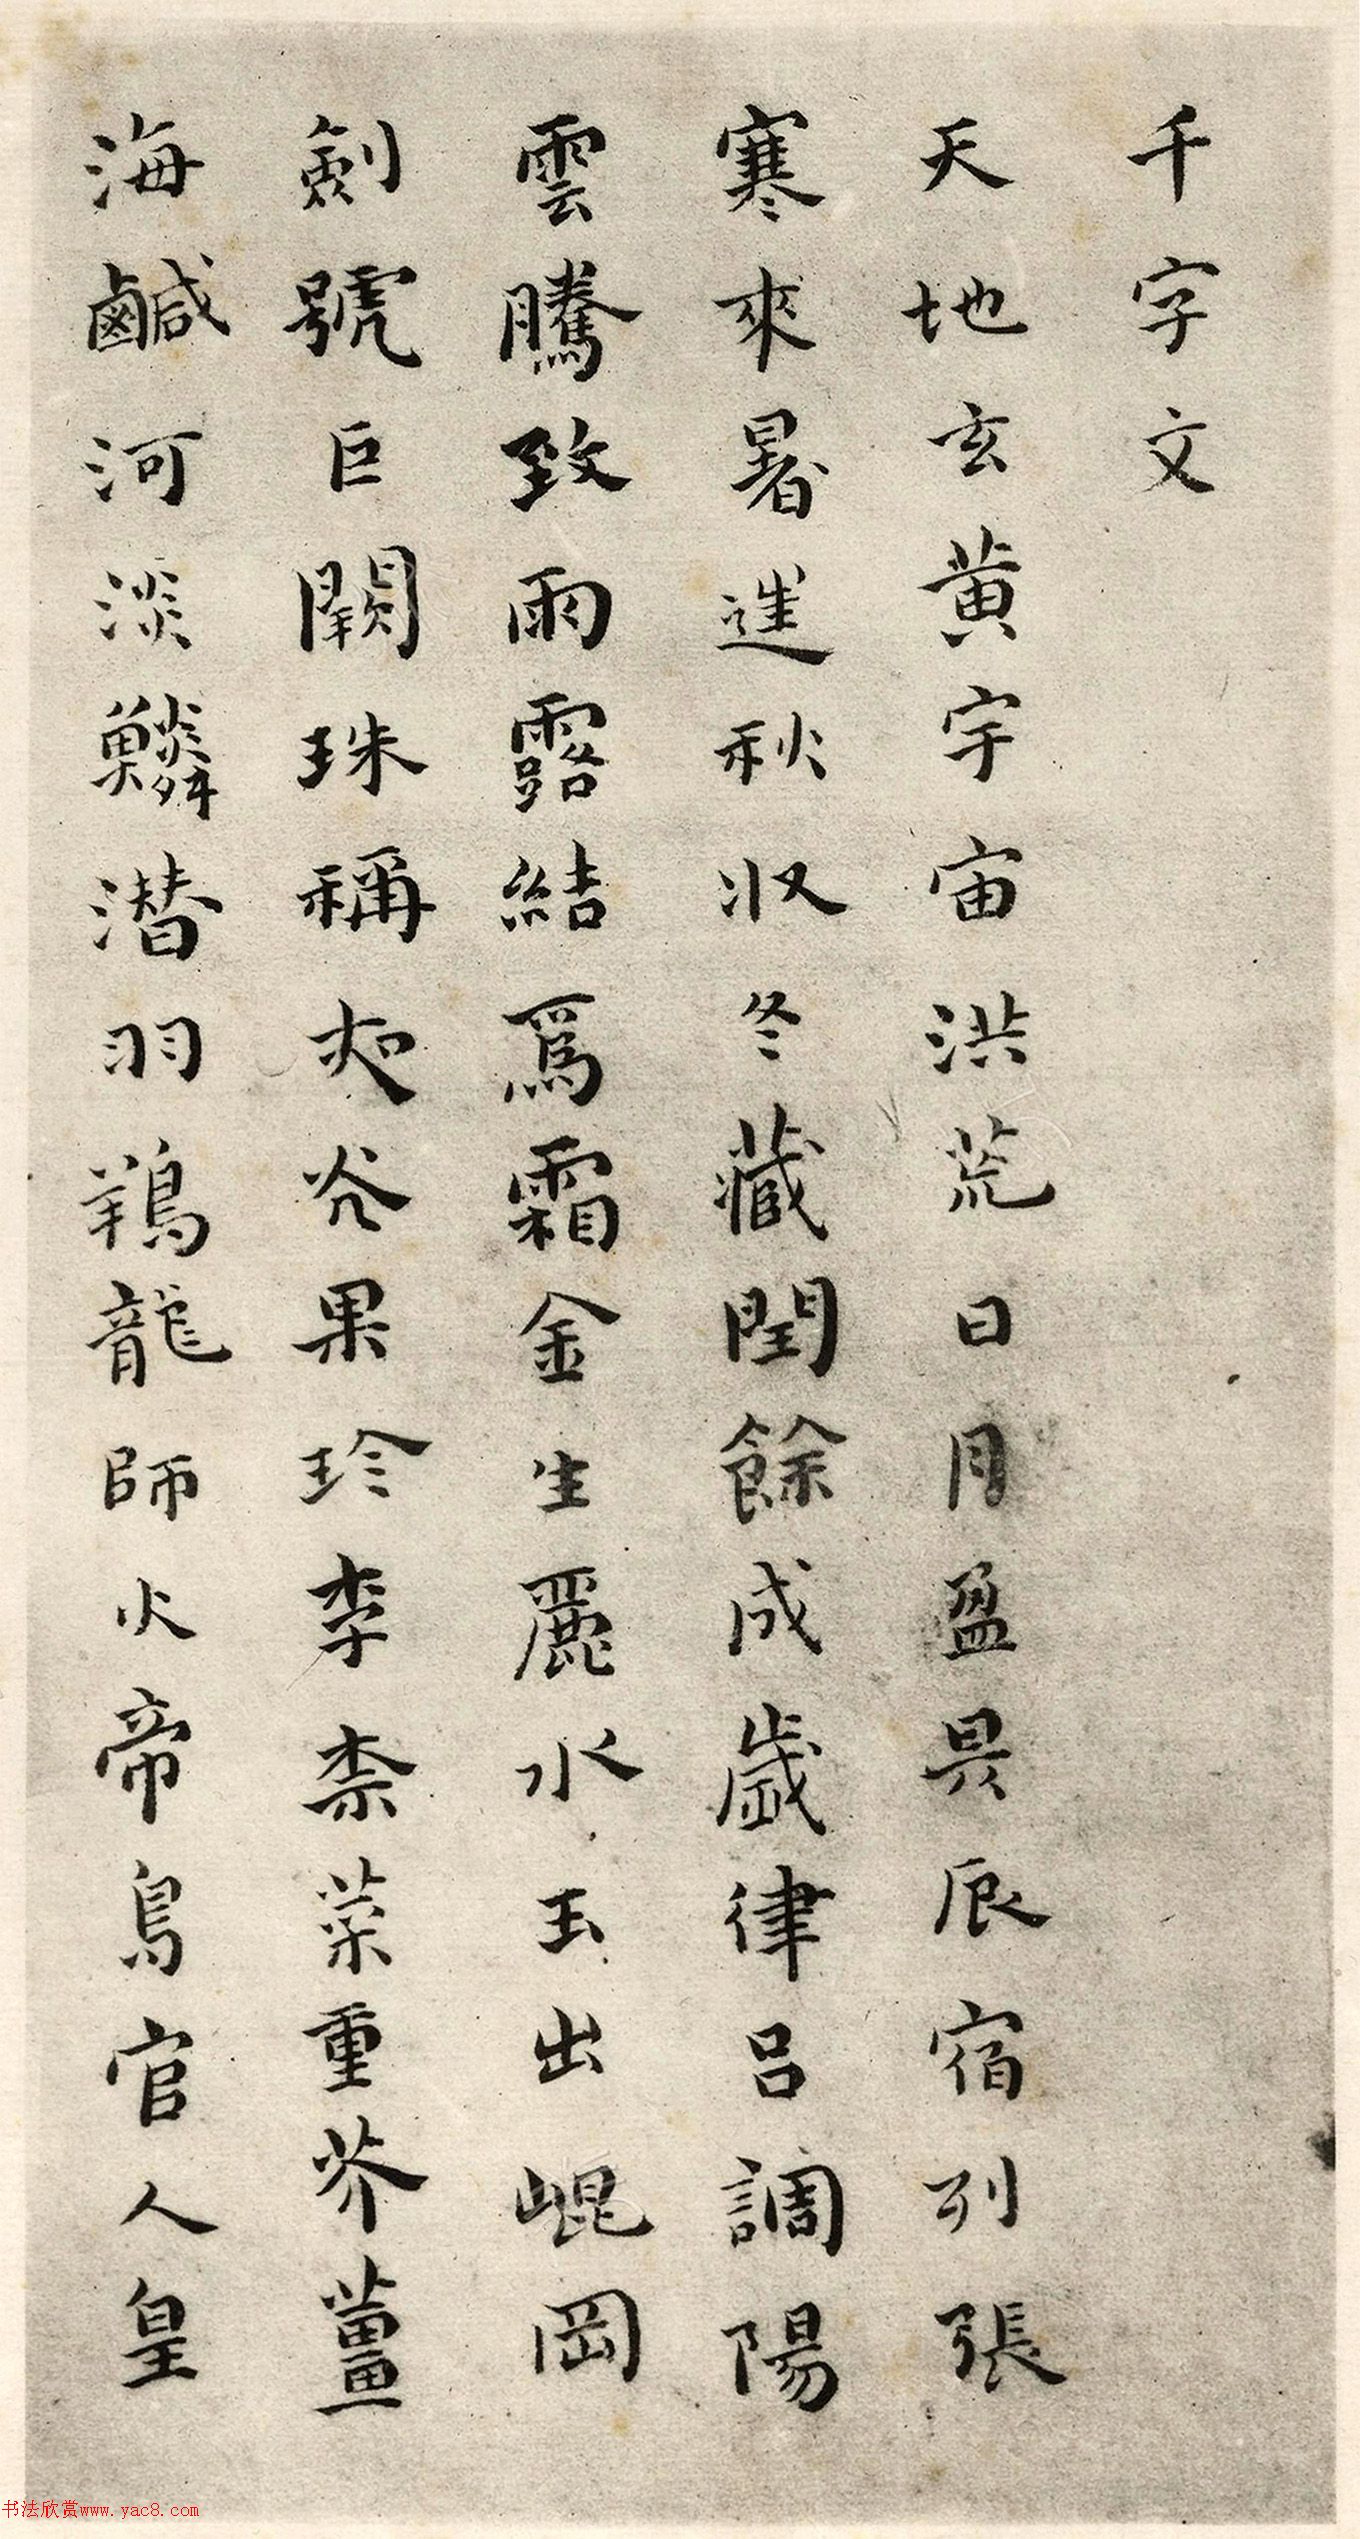 千字文
天地玄黃宇宙洪荒日月盈昃辰宿列張
寒來暑進秋收冬藏閏餘成歲律呂調陽
雲騰致雨露結爲霜金生麗水玉出崐岡
劍號巨闕珠稱夜光果珍李柰菜重芥薑
海鹹河淡鱗潛羽鴹龍師火帝鳥官人皇
书法欣赏www.yac8.com